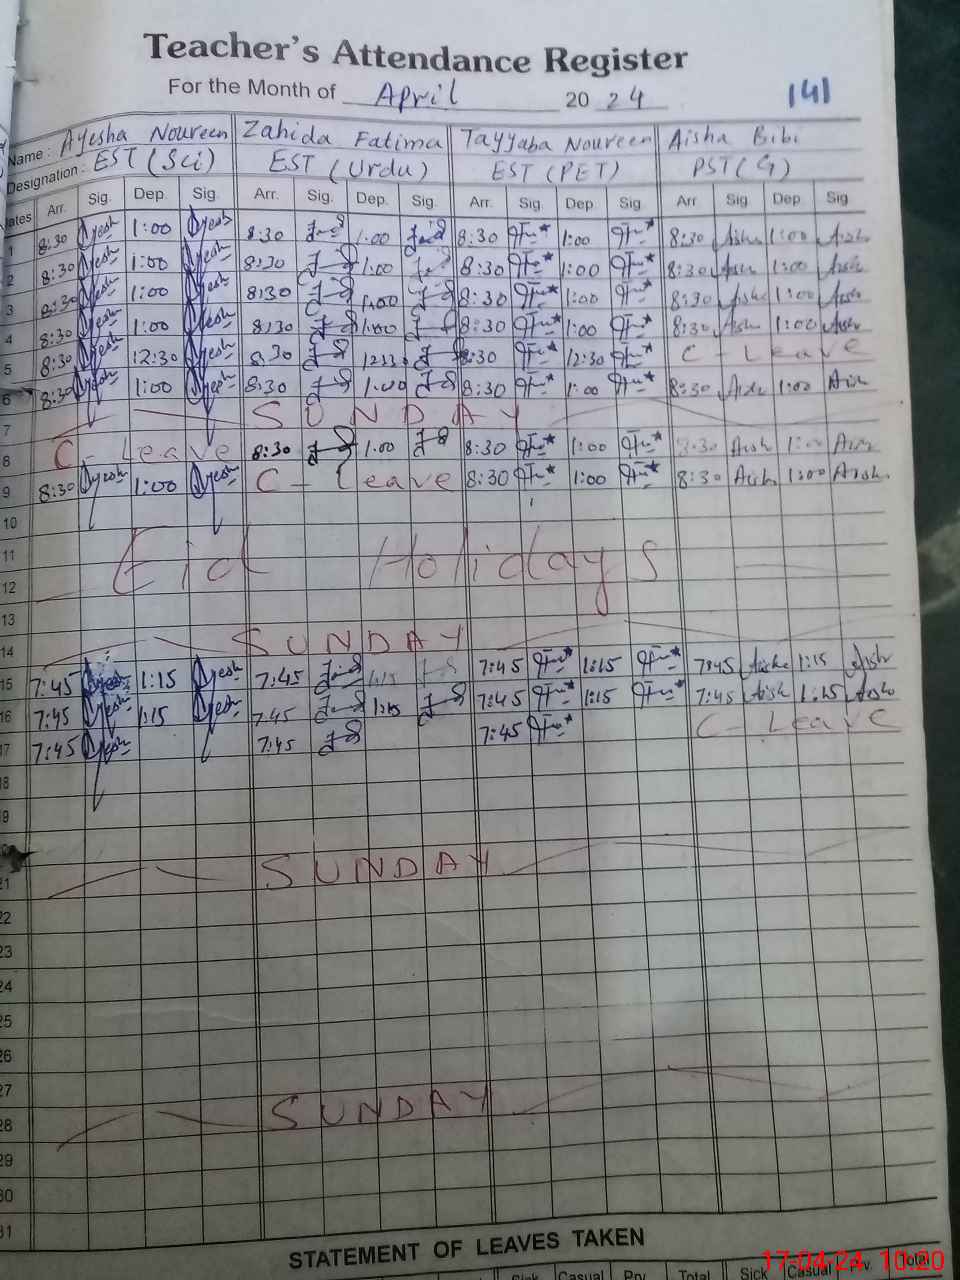 Teacher's Attendance Register
For the Month of April 2024 141
Name : Ayesha Noureen Zahida Fatima Tayyaba Noureen Aisha Bibi
Designation : EST (Sci) EST (Urdu) EST (PET) PST (G)
Dates Arr. Sig. Dep. Sig. Arr. Sig. Dep. Sig. Arr. Sig. Dep. Sig. Arr Sig Dep Sig
1 8:30 Ayesh 1:00 Ayesh 8:30 1:00 8:30 1:00 8:30 Aish 1:00 Aish
2 8:30 Ayesh 1:00 Ayesh 8:30 1:00 8:30 1:00 8:30 Aish 1:00 Aish
3 8:30 Ayesh 1:00 Ayesh 8:30 1:00 8:30 1:00 8:30 Aish 1:00 Aish
4 8:30 Ayesh 1:00 Ayesh 8:30 1:00 8:30 1:00 8:30 Aish 1:00 Aish
5 8:30 Ayesh 12:30 Ayesh 8:30 8:30 12:30 C - Leave
6 8:30 Ayesh 1:00 Ayesh 8:30 1:00 8:30 1:00 8:30 Aish 1:00 Aish
7 SUNDAY
8 C - Leave 8:30 1:00 8:30 1:00 8:30 Aish 1:00 Aish
9 8:30 Ayesh 1:00 Ayesh C - Leave 8:30 1:00 8:30 Aish 1:00 Aish
10
11 Eid Holidays
12
13
14 SUNDAY
15 7:45 Ayesh 1:15 Ayesh 7:45 1:15 7:45 1:15 7:45 Aish 1:15 Aish
16 7:45 Ayesh 1:15 Ayesh 7:45 1:15 7:45 1:15 7:45 Aish 1:15 Aish
17 7:45 Ayesh 7:45 7:45 C - Leave
18
19
21 SUNDAY
22
23
24
25
26
27
28 SUNDAY
29
30
31
STATEMENT OF LEAVES TAKEN
Sick Casual Prv. Total Sick Casual Prv. Total
17-04-24 10:20